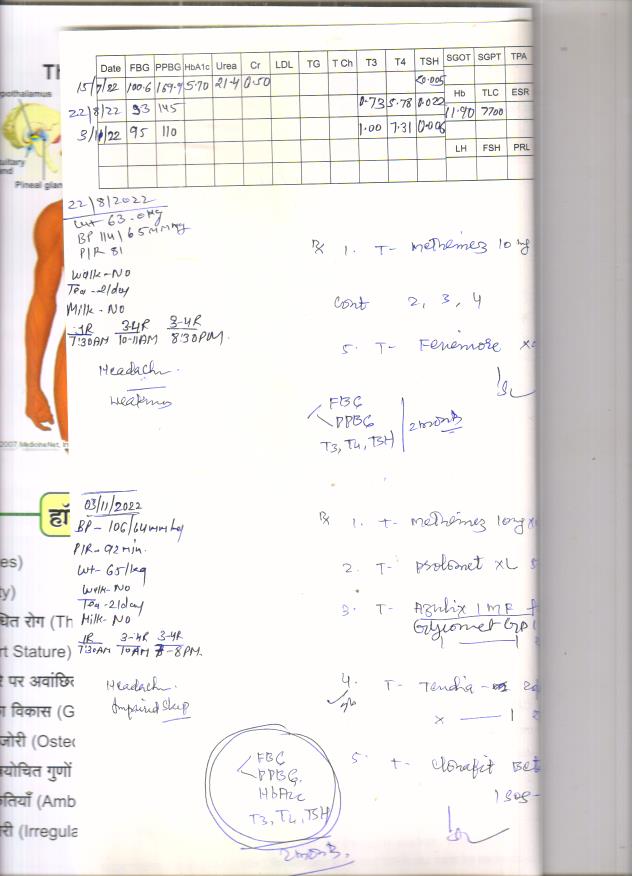 Th
Date FBG PPBG HbA1c Urea Cr LDL TG T Ch T3 T4 TSH SGOT SGPT TPA
15/7/22 100.6 169.9 5.70 21.4 0.50 <0.005
Hb TLC ESR
22/8/22 93 145 0.73 5.78 0.022 11.90 7700
3/11/22 95 110 1.00 7.31 0.006
LH FSH PRL
pothalamus
Pineal glan
22/8/2022
Wt 63.0kg
BP 114/65mmHg
P/R 81
Walk-No
Tea-2/day
Milk-No
1R 3-4R 3-4R
7:30AM 10-11AM 8:30PM.
Headach
Weakness
Rx 1. T- Methimez 10mg
Cont 2, 3, 4
5. T- Fenemore
FBG
PPBG
T3, T4, TSH
2 month
2007 MedicineNet, In
03/11/2022
BP- 106/64mmHg
P/R- 92min.
Wt- 65/kg
Walk-No
Tea-2/day
Milk-No
1R 3-4R 3-4R
7:30AM 10AM 8PM.
Headach
Impaired Sleep
Rx 1. T- Methimez 10mg
2. T- Psolomet XL
3. T- Azulix 1 MF
Glycomet GP1
4. T- Tendia
x — 1
5. T- Clonafit Beta
FBG
PPBG
HbA1c
T3, T4, TSH
2 month.
हॉ
es)
ty)
धित रोग (Th
rt Stature)
रे पर अवांछित
का विकास (G
जोरी (Osteo
पयोचित गुणों
कतियाँ (Amb
री (Irregula